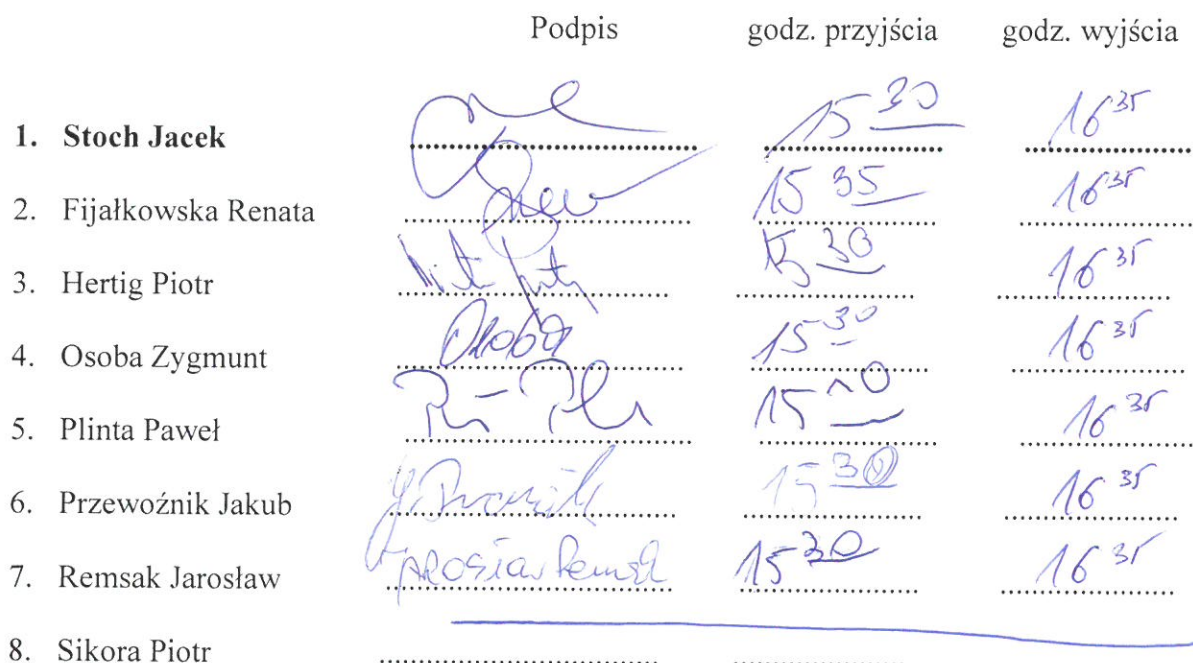 Podpis godz. przyjścia godz. wyjścia
1. Stoch Jacek 15 30 16 35
2. Fijałkowska Renata 15 35 16 35
3. Hertig Piotr 15 30 16 35
4. Osoba Zygmunt Osoba 15 30 16 35
5. Plinta Paweł 15 10 16 35
6. Przewoźnik Jakub 15 30 16 35
7. Remsak Jarosław Jarosław Remsak 15 30 16 35
8. Sikora Piotr